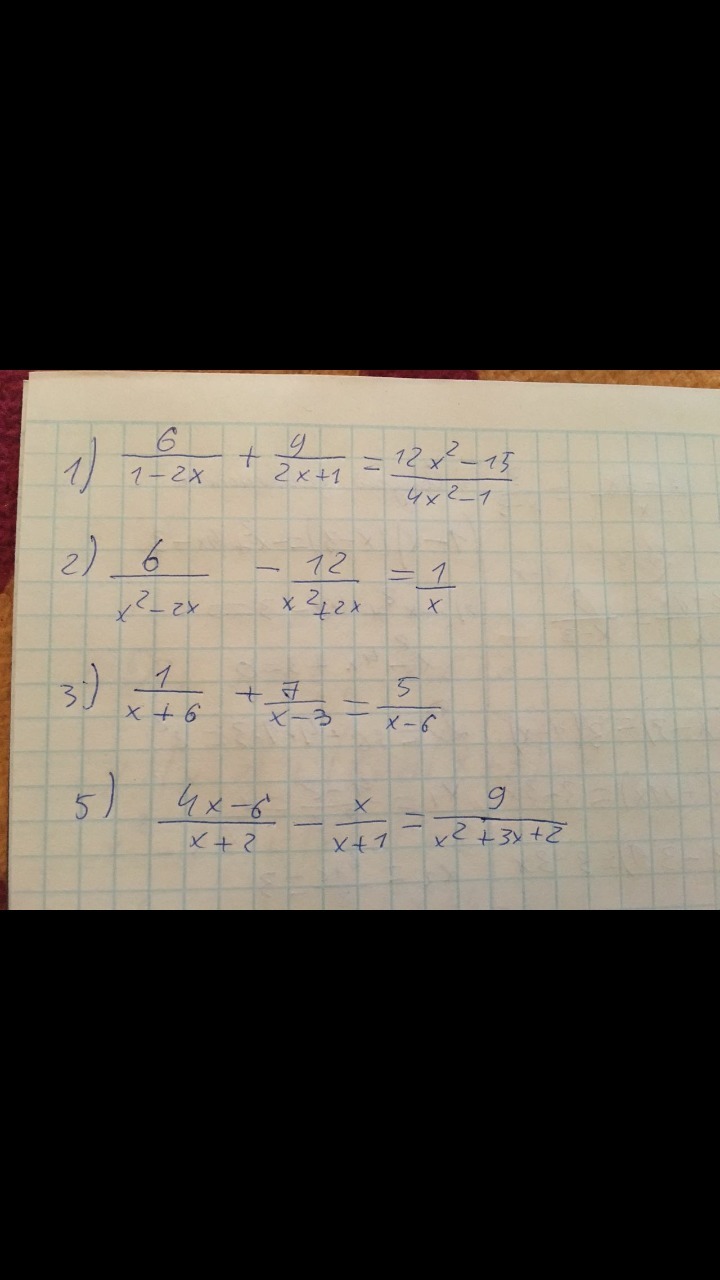 1) 6/(1-2x) + 9/(2x+1) = (12x²-15)/(4x²-1)
2) 6/(x²-2x) - 12/(x²+2x) = 1/x
3) 1/(x+6) + 7/(x-3) = 5/(x-6)
5) (4x-6)/(x+2) - x/(x+1) = 9/(x²+3x+2)